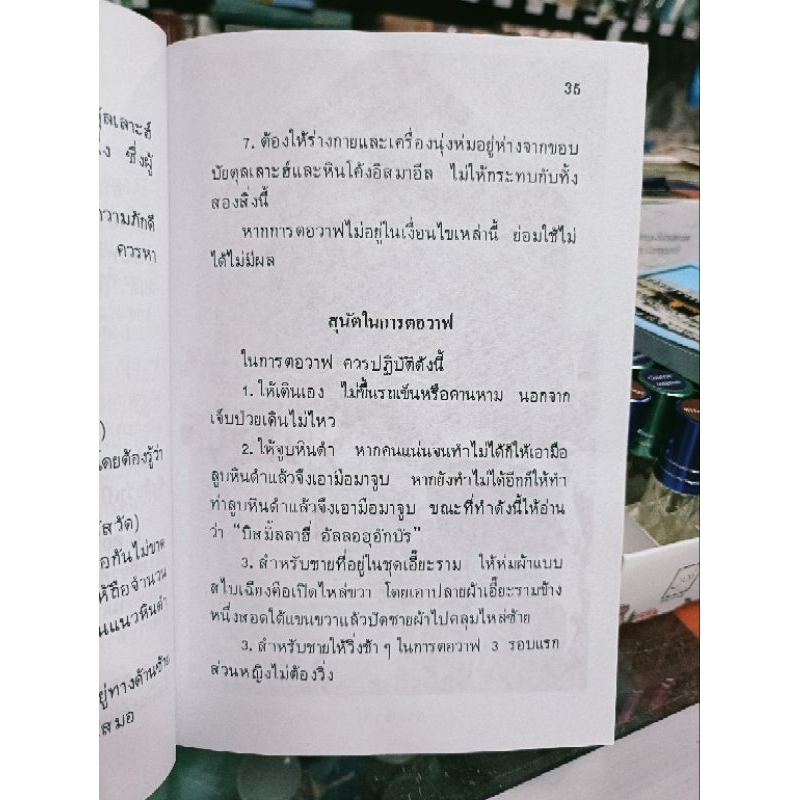 ุ้ลเลาะฮ์
ง ซึ่งผู้
วามภักดี
ควรหา
)
โดยต้องรู้ว่า
ัสวัด)
อกันไม่ขาด
ห้ถือจำนวน
นแนวหินดำ
ยู่ทางด้านซ้าย
สมอ
35
7. ต้องให้ร่างกายและเครื่องนุ่งห่มอยู่ห่างจากขอบ
บัยตุลเลาะฮ์และหินโค้งอิสมาอีล ไม่ให้กระทบกับทั้ง
สองสิ่งนี้
หากการตอวาฟไม่อยู่ในเงื่อนไขเหล่านี้ ย่อมใช้ไม่
ได้ไม่มีผล
สุนัตในการตอวาฟ
ในการตอวาฟ ควรปฏิบัติดังนี้
1. ให้เดินเอง ไม่ขึ้นรถเข็นหรือคานหาม นอกจาก
เจ็บป่วยเดินไม่ไหว
2. ให้จูบหินดำ หากคนแน่นจนทำไม่ได้ก็ให้เอามือ
ลูบหินดำแล้วจึงเอามือมาจูบ หากยังทำไม่ได้อีกก็ให้ทำ
ท่าลูบหินดำแล้วจึงเอามือมาจูบ ขณะที่ทำดังนี้ให้อ่าน
ว่า “บิสมิ้ลลาฮี่ อัลลอฮุอักบัร”
3. สำหรับชายที่อยู่ในชุดเอี๊ยะราม ให้ห่มผ้าแบบ
สไบเฉียงคือเปิดไหล่ขวา โดยเอาปลายผ้าเอี๊ยะรามข้าง
หนึ่งสอดใต้แขนขวาแล้วปัดชายผ้าไปคลุมไหล่ซ้าย
3. สำหรับชายให้วิ่งช้า ๆ ในการตอวาฟ 3 รอบแรก
ส่วนหญิงไม่ต้องวิ่ง